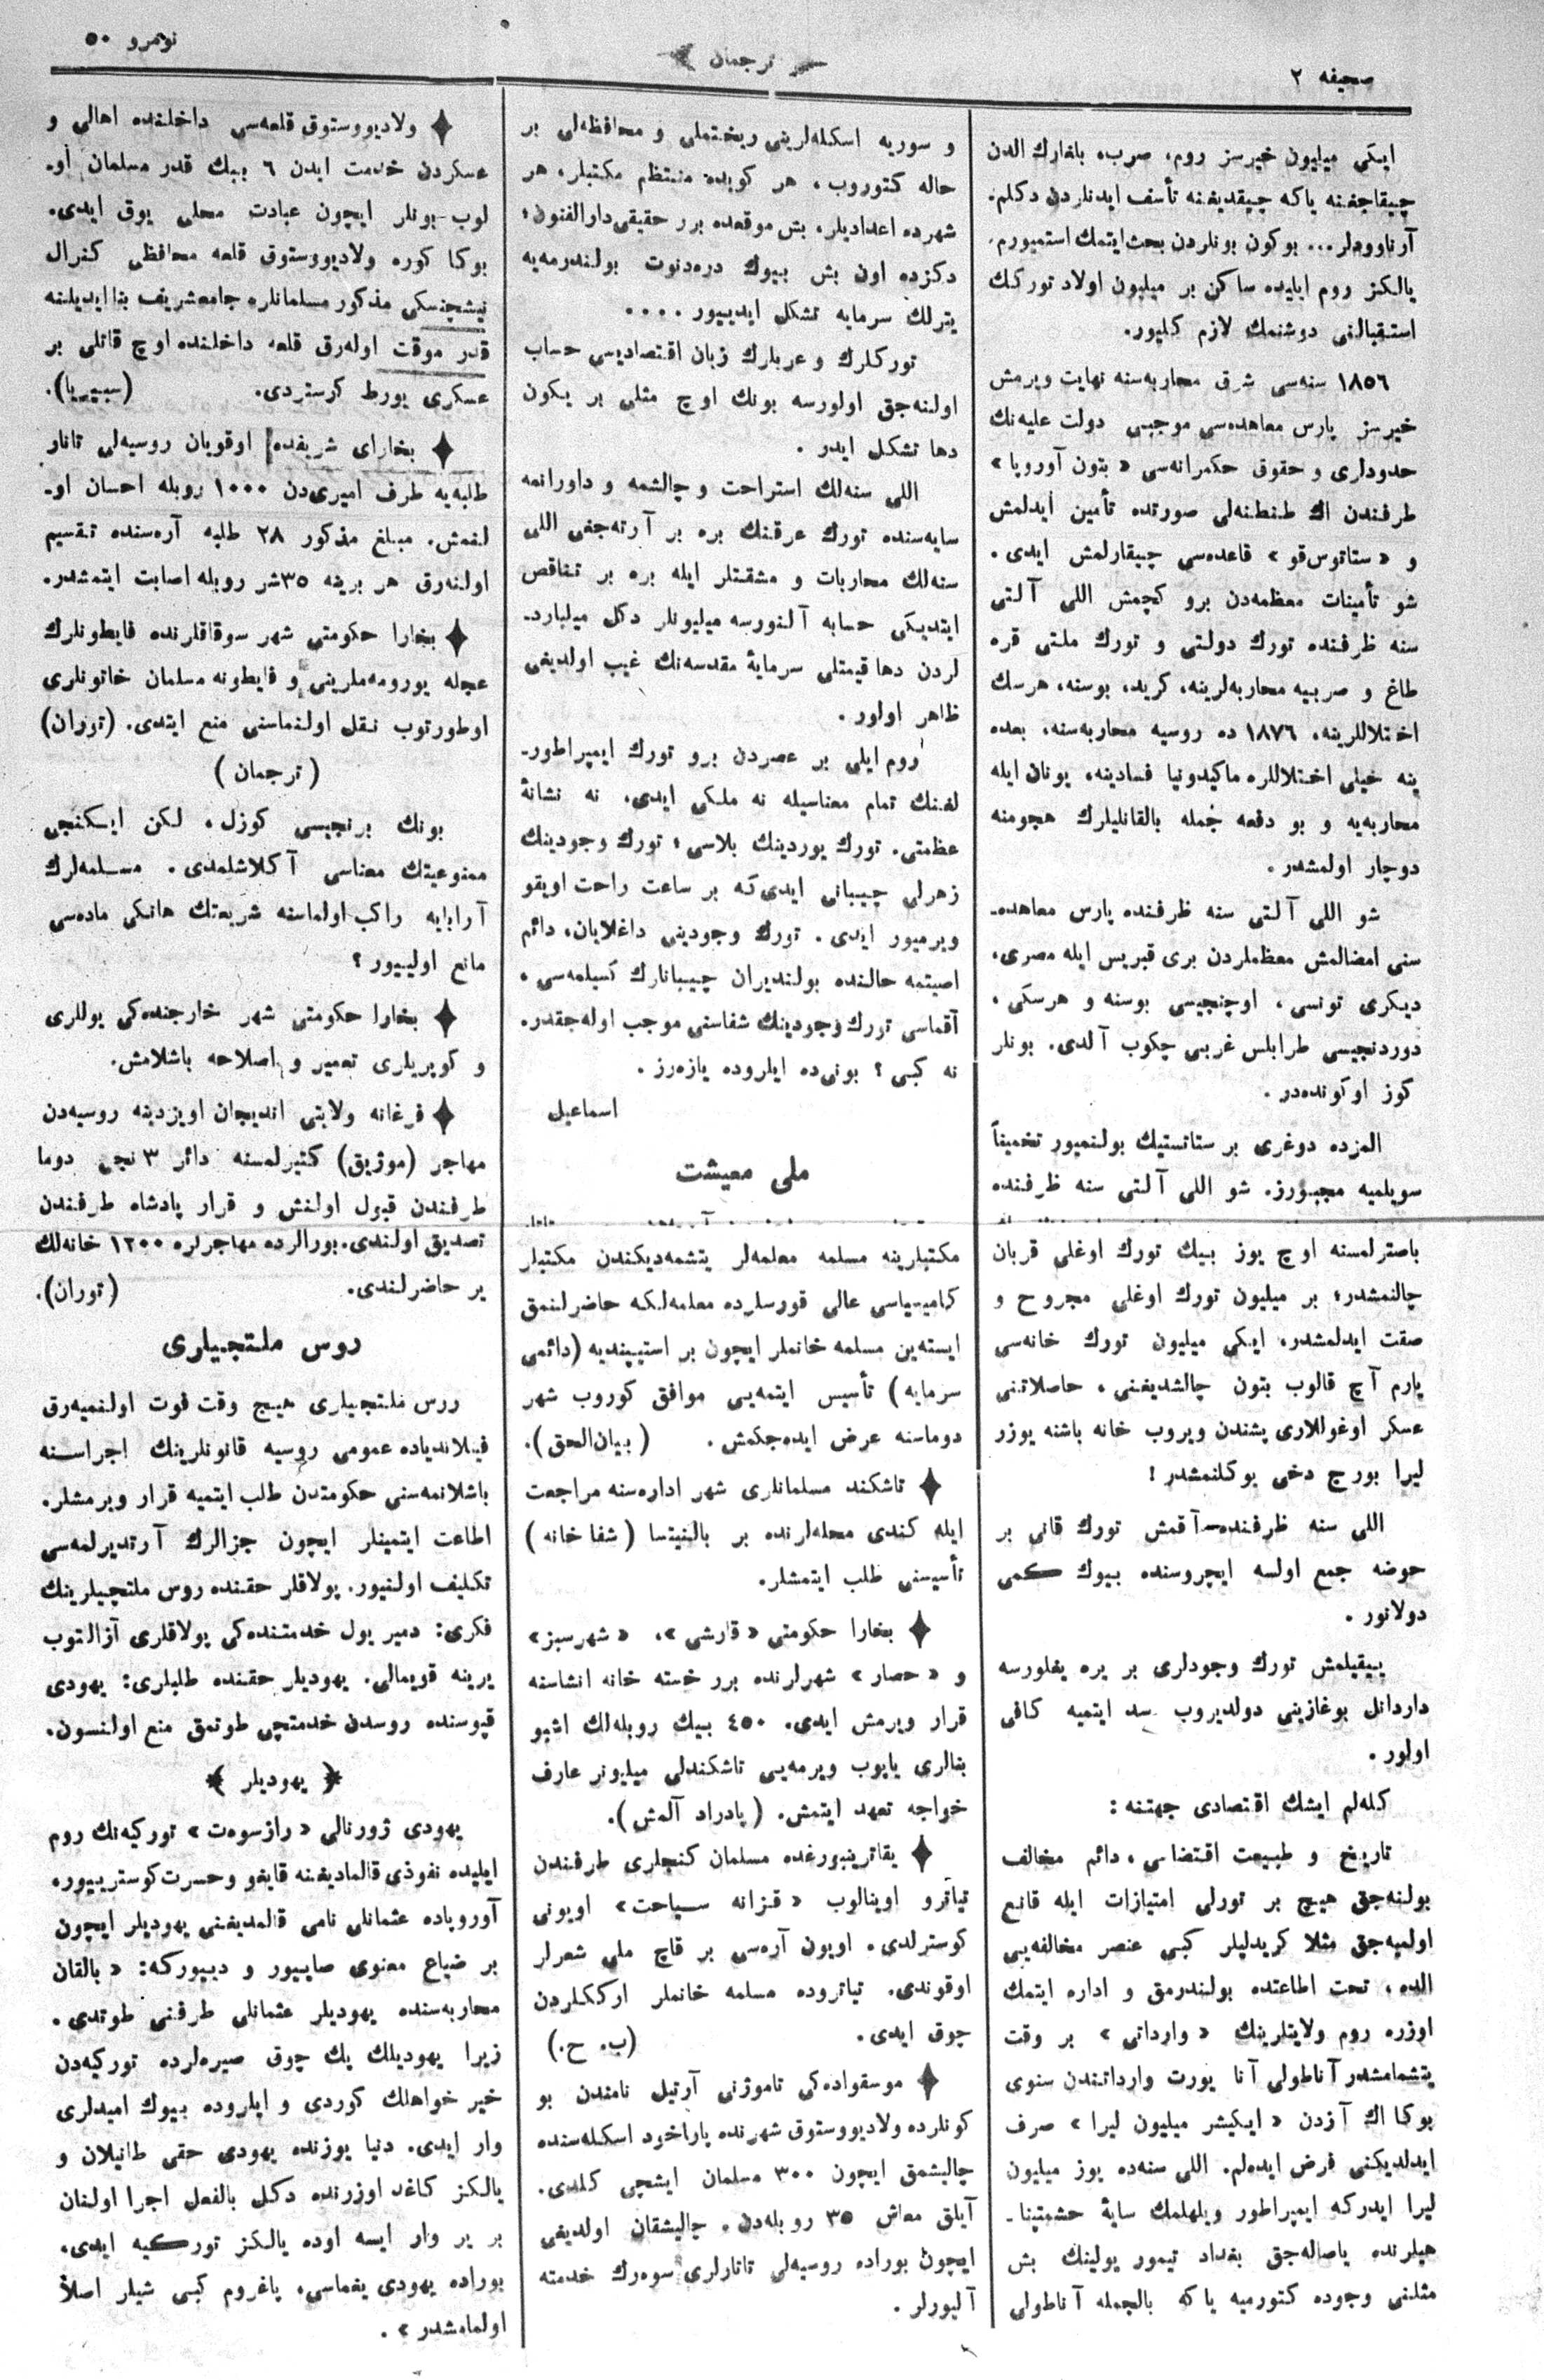 صحیفه ٢
ترجمان
نومرو ٥٠
ایکی میلیون خیرسز روم، صرب، بلغارك الدن
چیقاجغنه یاکه چیقدیغنه تأسف ایدنلردن دکلم.
آرناوودلر... بوکون بونلردن بحث ایتمك استمیورم،
یالکز روم ایلیده ساکن بر میلیون اولاد تورکك
استقبالنی دوشنمك لازم کلیور.
١٨٥٦ سنه‌سی شرق محاربه‌سنه نهایت ویرمش
خیرسز پارس معاهده‌سی موجبی دولت علیه‌نك
حدوداری و حقوق حکمرانه‌سی «بتون آوروپا»
طرفندن اك طنطنه‌لی صورتده تأمین ایدلمش
و «ستاتوس‌قو» قاعده‌سی چیقارلمش ایدی.
شو تأمینات معظمه‌دن برو کچمش اللی آلتی
سنه ظرفنده تورك دولتی و تورك ملتی قره
طاغ و صربیه محاربه‌لرینه، کرید، بوسنه، هرسك
اختلاللرینه، ١٨٧٦ ده روسیه محاربه‌سنه، بعده
ینه خیلی اختلاللره ماکیدونیا فسادینه، یونان ایله
محاربه‌یه و بو دفعه جمله بالقانلیلرك هجومنه
دوچار اولمشدر.
شو اللی آلتی سنه ظرفنده پارس معاهده‌ـ
سنی امضالمش معظملردن بری قبریس ایله مصری،
دیکری تونسی، اوچنجیسی بوسنه و هرسکی،
دوردنجیسی طرابلس غربی چکوب آلدی. بونلر
کوز اوکونده‌در.
المزده دوغری بر ستاتستیك بولنمیور تخمیناً
سویلمیه مجبورز. شو اللی آلتی سنه ظرفنده
باصترلمسنه اوچ یوز بیك تورك اوغلی قربان
چالنمشدر؛ بر میلیون تورك اوغلی مجروح و
صقت ایدلمشدر، ایکی میلیون تورك خانه‌سی
یارم آچ قالوب بتون چالشدیغنی، حاصلاتنی
عسکر اوغوللاری پشندن ویروب خانه باشنه یوزر
لیرا بورج دخی یوکلنمشدر!
اللی سنه ظرفنده آقمش تورك قانی بر
حوضه جمع اولسه ایچروسنده بیوك کمی
دولانور.
ییقیلمش تورك وجودلری بر یره یغلورسه
داردانل بوغازینی دولدیروب سد ایتمیه کافی
اولور.
کله‌لم ایشك اقتصادی جهتنه:
تاریخ و طبیعت اقتضاسی، دائم مخالف
بولنه‌جق هیچ بر تورلی امتیازات ایله قانع
اولمیه‌جق مثلا کریدلیلر کبی عنصر مخالفه‌یی
الده، تحت اطاعتده بولندرمق و اداره ایتمك
اوزره روم ولایتلرینك «وارداتی» بر وقت
یتشمامشدر آناطولی آنا یورت وارداتندن سنوی
بوکا اك آزدن «ایکیشر میلیون لیرا» صرف
ایدلدیکنی فرض ایده‌لم. اللی سنه‌ده یوز میلیون
لیرا ایدرکه ایمپراطور ویلهلمك سایۀ حشمتپناـ
هیلرنده یاصاله‌جق بغداد تیمور یولینك بش
مثلنی وجوده کتورمیه یاکه بالجمله آناطولی
و سوریه اسکله‌لرینی ریختملی و محافظه‌لی بر
حاله کتوروب، هر کویده منتظم مکتبلر، هر
شهرده اعدادیلر، بش موقعده برر حقیقی دارالفنون؛
دکزده اون بش بیوك دره‌دنوت بولندرمه‌یه
یترلك سرمایه تشکل ایدییور ....
تورکلرك و عربلرك زیان اقتصادیسی حساب
اولنه‌جق اولورسه بونك اوچ مثلی بر یکون
دها تشکل ایدر.
اللی سنه‌لك استراحت و چالشمه و داورانمه
سایه‌سنده تورك عرقنك بره بر آرته‌جغی اللی
سنه‌لك محاربات و مشقتلر ایله بره بر تناقص
ایتدیکی حسابه آلنورسه میلیونلر دکل میلیاردـ
لردن دها قیمتلی سرمایۀ مقدسه‌نك غیب اولدیغی
ظاهر اولور.
روم ایلی بر عصردن برو تورك ایمپراطورـ
لغنك تمام معناسیله نه ملکی ایدی، نه نشانۀ
عظمتی. تورك یوردینك بلاسی؛ تورك وجودینك
زهرلی چیبانی ایدی که بر ساعت راحت اویقو
ویرمیور ایدی. تورك وجودینی داغلایان، دائم
اصیتمه حالنده بولندیران چیبانارك کسیلمه‌سی،
آقماسی تورك وجودینك شفاسنی موجب اوله‌جقدر.
نه کبی؟ بونی‌ده ایلروده یازه‌رز.
اسماعیل
ملی معیشت
مکتبلرینه مسلمه معلمه‌لر یتشمه‌دیکندن مکتبلر
کامیسیاسی عالی قورسلرده معلمه‌لکه حاضرلنمق
ایسته‌ین مسلمه خانملر ایچون بر استیپندیه (دائمی
سرمایه) تأسیس ایتمه‌یی موافق کوروب شهر
دوماسنه عرض ایده‌جکمش. (بیان‌الحق).
تاشکند مسلمانلری شهر اداره‌سنه مراجعت
ایله کندی محله‌لرنده بر بالنیتسا (شفا خانه)
تأسیسنی طلب ایتمشلر.
بخارا حکومتی «قارشی»، «شهرسبز»
و «حصار» شهرلرنده برر خسته خانه انشاسنه
قرار ویرمش ایدی. ٤٥٠ بیك روبله‌لك اشبو
بنالری یاپوب ویرمه‌یی تاشکندلی میلیونر عارف
خواجه تعهد ایتمش. (پادراد آلمش).
یقاترینبورغده مسلمان کنجلری طرفندن
تیاترو اوینالوب «قزانه سیاحت» اویونی
کوسترلدی. اویون آره‌سی بر قاچ ملی شعرلر
اوقوندی. تیاتروده مسلمه خانملر ارککلردن
چوق ایدی. (ب. ح.)
موسقواده‌کی تاموژنی آرتیل نامندن بو
کونلرده ولادیووستوق شهرنده پاراخود اسکله‌سنده
چالیشمق ایچون ٣٠٠ مسلمان ایشچی کلدی.
آیلق معاش ٣٥ روبله‌دن. چالیشقان اولدیغی
ایچون بوراده روسیه‌لی تاتارلری سوه‌رك خدمته
آلیورلر.
ولادیووستوق قلعه‌سی داخلنده اهالی و
عسکردن خدمت ایدن ٦ بیك قدر مسلمان اوـ
لوب بونلر ایچون عبادت محلی یوق ایدی.
بوکا کوره ولادیووستوق قلعه محافظی کنرال
نیشچنسکی مذکور مسلمانلره جامع شریف بنا ایدیلنه
قدر موقت اوله‌رق قلعه داخلنده اوچ قاتلی بر
عسکری یورط کوستردی. (سیبیریا).
بخارای شریفده اوقویان روسیه‌لی تاتار
طلبه‌یه طرف امیری‌دن ١٠٠٠ روبله احسان اوـ
لنمش. مبلغ مذکور ٢٨ طلبه آره‌سنده تقسیم
اولنه‌رق هر برینه ٣٥شر روبله اصابت ایتمشدر.
بخارا حکومتی شهر سوقاقلرنده فایطونلرك
عجله یورومه‌ملرینی و فایطونه مسلمان خاتونلری
اوطورتوب نقل اولنماسنی منع ایتدی. (توران)
(ترجمان)
بونك برنجیسی کوزل، لکن ایکنجی
ممنوعیتك معناسی آکلاشلمدی. مسلمه‌لرك
آرابایه راکب اولماسنه شریعتك هانکی ماده‌سی
مانع اولییور؟
بخارا حکومتی شهر خارجنده‌کی یوللری
و کوپریلری تعمیر و اصلاحه باشلامش.
فرغانه ولایتی اندیجان اویزدینه روسیه‌دن
مهاجر (موژیق) کتیرلمسنه دائر ٣نجی دوما
طرفندن قبول اولنمش و قرار پادشاه طرفندن
تصدیق اولندی. بورالرده مهاجرلره ١٢٠٠ خانه‌لك
یر حاضرلندی. (توران).
روس ملتجیلری
روس ملتجیلری هیچ وقت فوت اولنمیه‌رق
فینلاندیاده عمومی روسیه قانونلرینك اجراسنه
باشلانمه‌سنی حکومتدن طلب ایتمیه قرار ویرمشلر.
اطاعت ایتمینلر ایچون جزالرك آرتدیرلمه‌سی
تکلیف اولنیور. پولاقلر حقنده روس ملتجیلرینك
فکری: دمیر یول خدمتنده‌کی پولاقلری آزالتوب
یرینه قویمالی. یهودیلر حقنده طلبلری: یهودی
قپوسنده روسدن خدمتچی طوتمق منع اولنسون.
یهودیلر
یهودی ژورنالی «رازسوه‌ت» تورکیه‌نك روم
ایلیده نفوذی قالمادیغنه قایغو و حسرت کوسترییور،
آوروپاده عثمانلی نامی قالمدیغنی یهودیلر ایچون
بر ضیاع معنوی صاییور و دییورکه: «بالقان
محاربه‌سنده یهودیلر عثمانلی طرفنی طوتدی.
زیرا یهودیلك پك چوق صیره‌لرده تورکیه‌دن
خیر خواهلك کوردی و ایلروده بیوك امیدلری
وار ایدی. دنیا یوزنده یهودی حقی طانیلان و
یالکز کاغد اوزرنده دکل بالفعل اجرا اولنان
بر یر وار ایسه اوده یالکز تورکیه ایدی.
بوراده یهودی یغماسی، یاغروم کبی شیلر اصلاً
اولمامشدر».